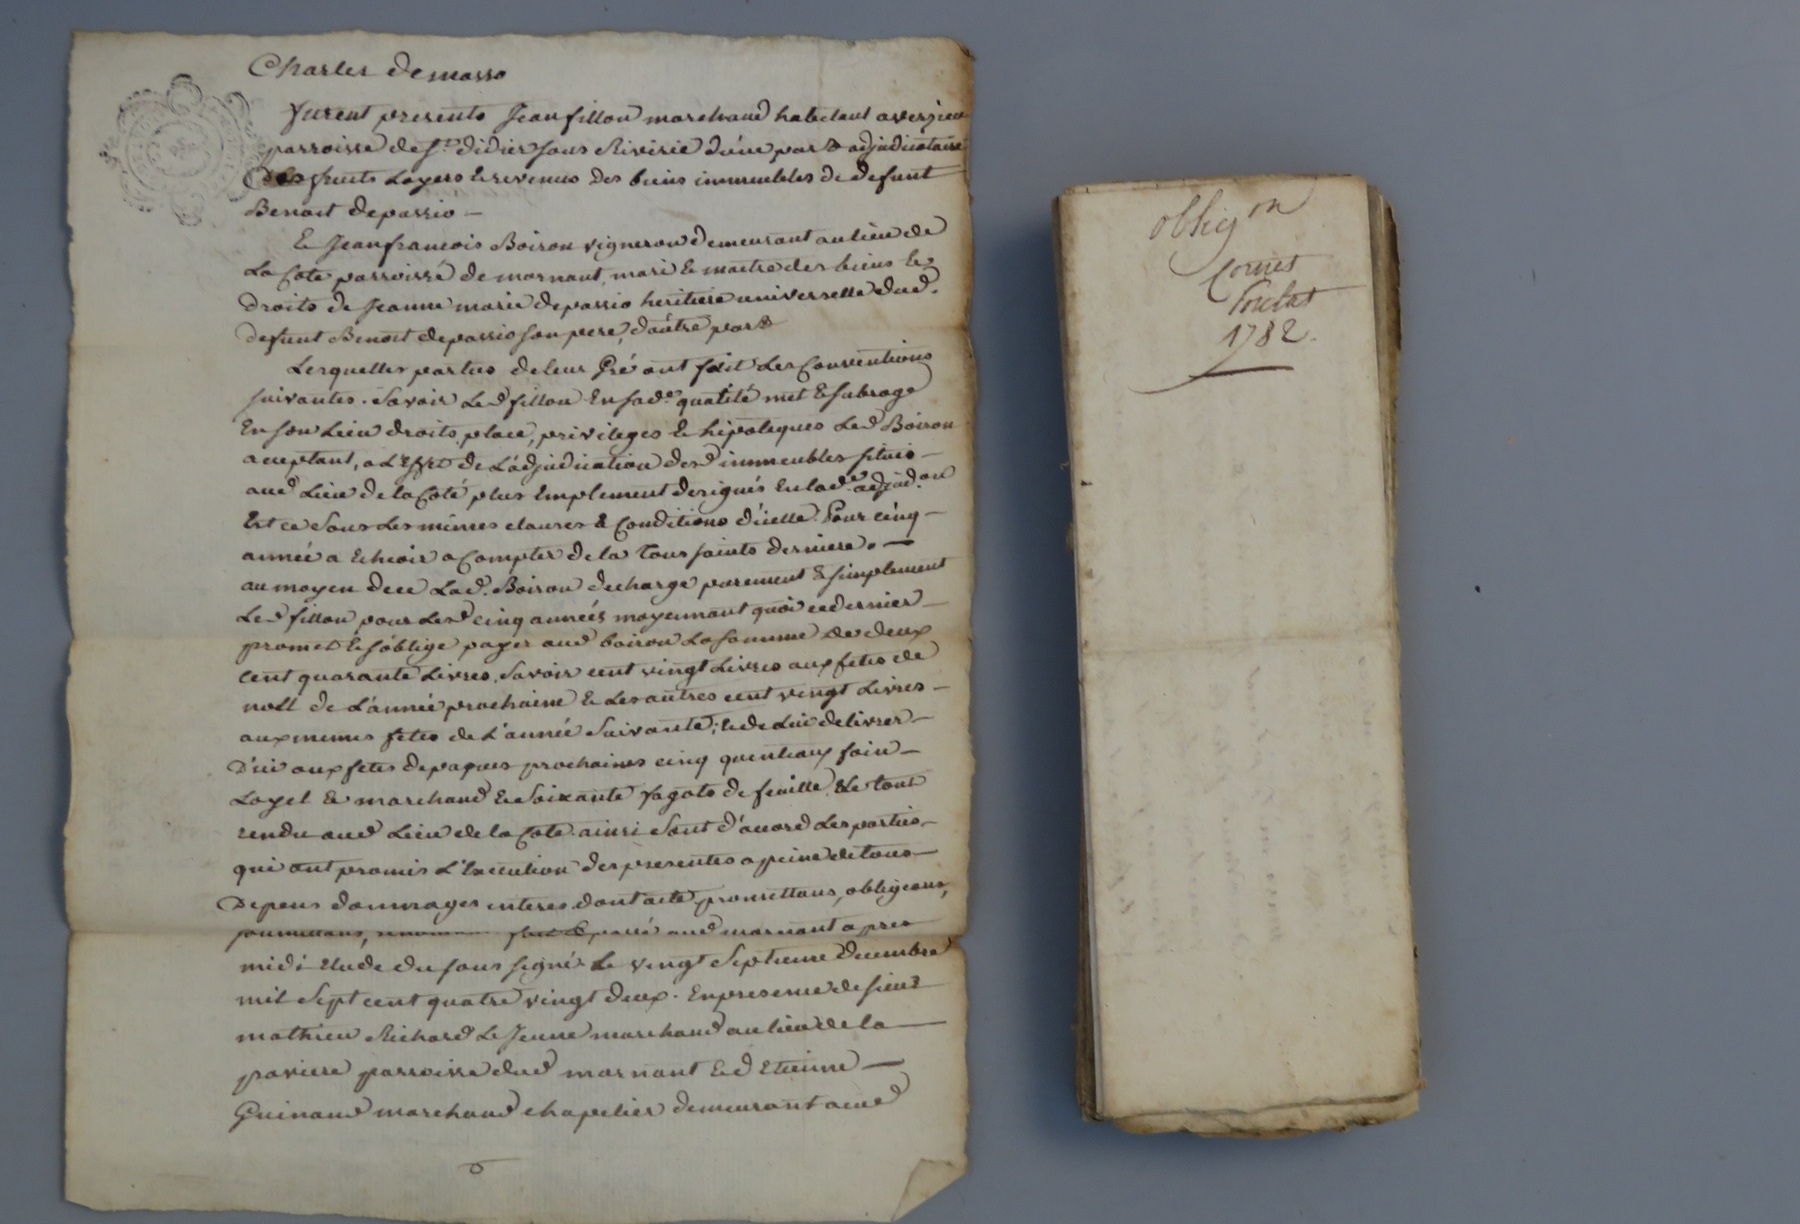 Charles demasso
furent presents Jean fillon marchand habitant a verzieu
parroisse de St. didier sous Riverie d'une part adjudicataire
des fruits Loyers & revenus des biens immeubles de defunt
Benoit depassio –
& Jean francois Boiron vigneron demeurant au lieu de
La Cote parroisse de mornant, mari & maitre des biens &
droits de Jeanne marie depassio heritiere universelle dud.
defunt Benoit depassio son pere, d'autre part
Lesquelles parties de leur Gré ont fait Les Conventions
suivantes. Savoir Led fillon En sade. qualité met & subroge
En son Lieu droits, place, privileges & hipoteques Led Boiron
aceptant, a L'Effet de L'adjudication desd immeubles situés –
aud Lieu de la Coté plus Emplement designés En lade. adjud.on
Est ce sous Les mêmes clauses & Conditions d'icelle. Pour cinq –
année a Echeoir a Compter de la Toussaints derniere. –
au moyen de ce Led. Boiron decharge purement & simplement
Led fillon pour Lesd cinq années moyennant quoi ce dernier –
promet & s'oblige payer aud boiron La somme de deux
cent quarante Livres, Savoir cent vingt Livres aux fetes de
noel de L'année prochaine & Les autres cent vingt Livres –
aux memes fetes de L'année Suivante; & de Lui delivrer –
D'ici aux fetes de paques prochaines cinq quintaux foin –
Loyel & marchand & Soixante fagots de feuille, & Le tout
rendu aud Lieu de la Cote. ainsi Sont d'acord Les parties –
qui ont promis L'Execution des presentes a peine de tous –
Depens dommages interes dont acte, promettans, obligeans,
soumettans, fait & passé aud mornant apres
midi Etude du sous signé Le vingt Septieme decembre
mil Sept cent quatre vingt deux. En presence de sieur
mathieu Richard Le Jeune marchand au lieu de la –
paviere parroisse dud mornant & d Etienne –
Guinand marchand chapelier demeurant aud
oblig on
Cornet
1782.